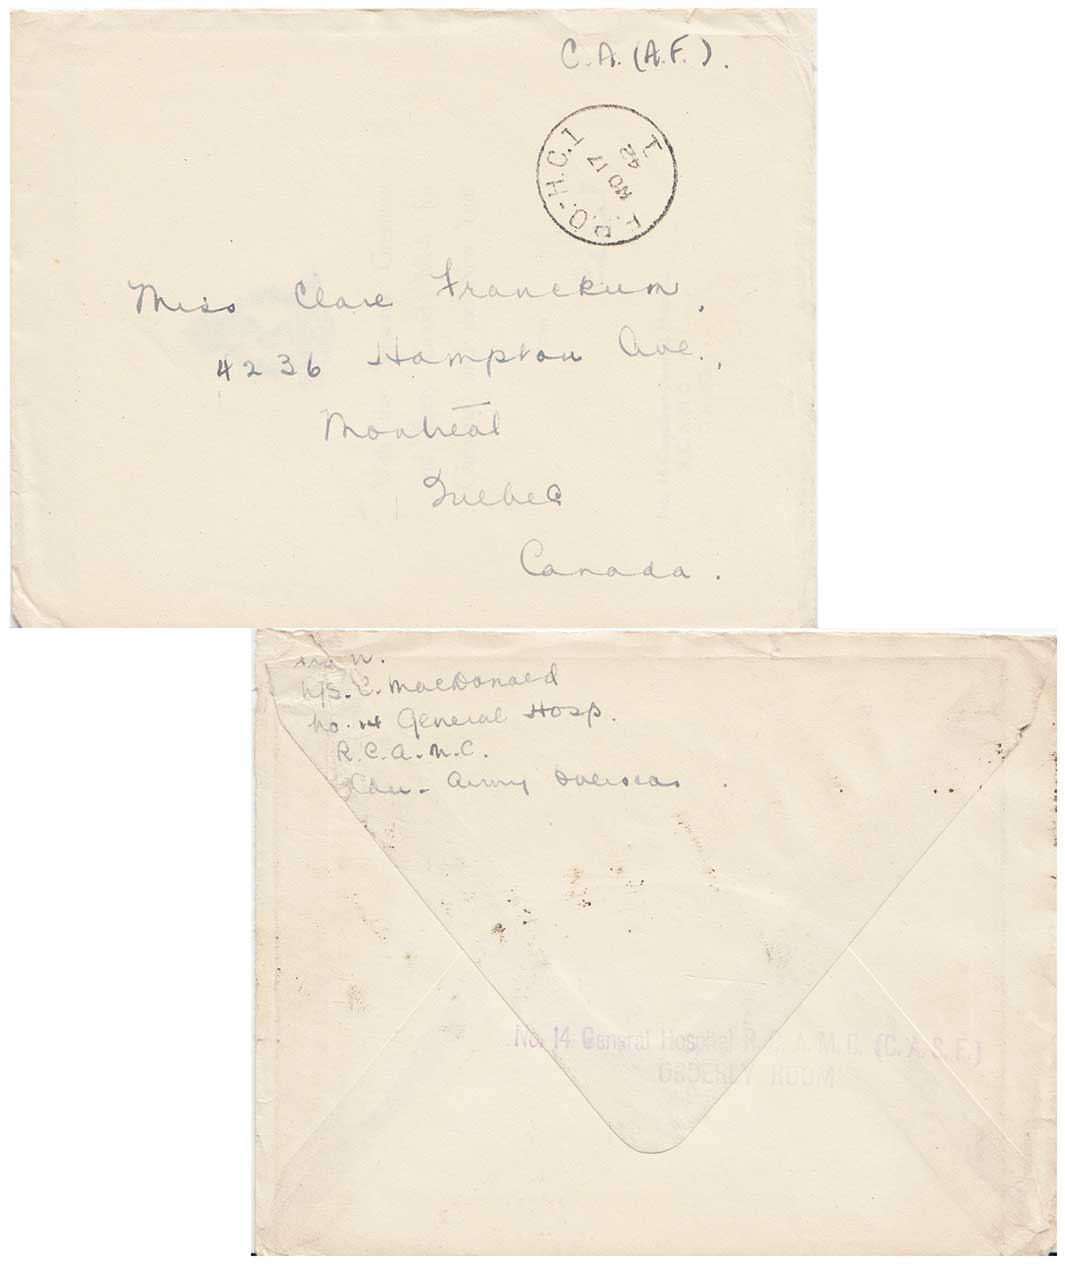 C.A. (A.F.).
F.P.O.-H.C.1
1
NO 17
42
Miss Clare Franckum,
4236 Hampton Ave.,
Montreal
Quebec
Canada.
N/S. C. MacDonald
No. 14 General Hosp.
R.C.A.M.C.
Cdn. Army Overseas
No. 14 General Hospital R. C. A. M. C. (C. A. S. F.)
ORDERLY ROOM